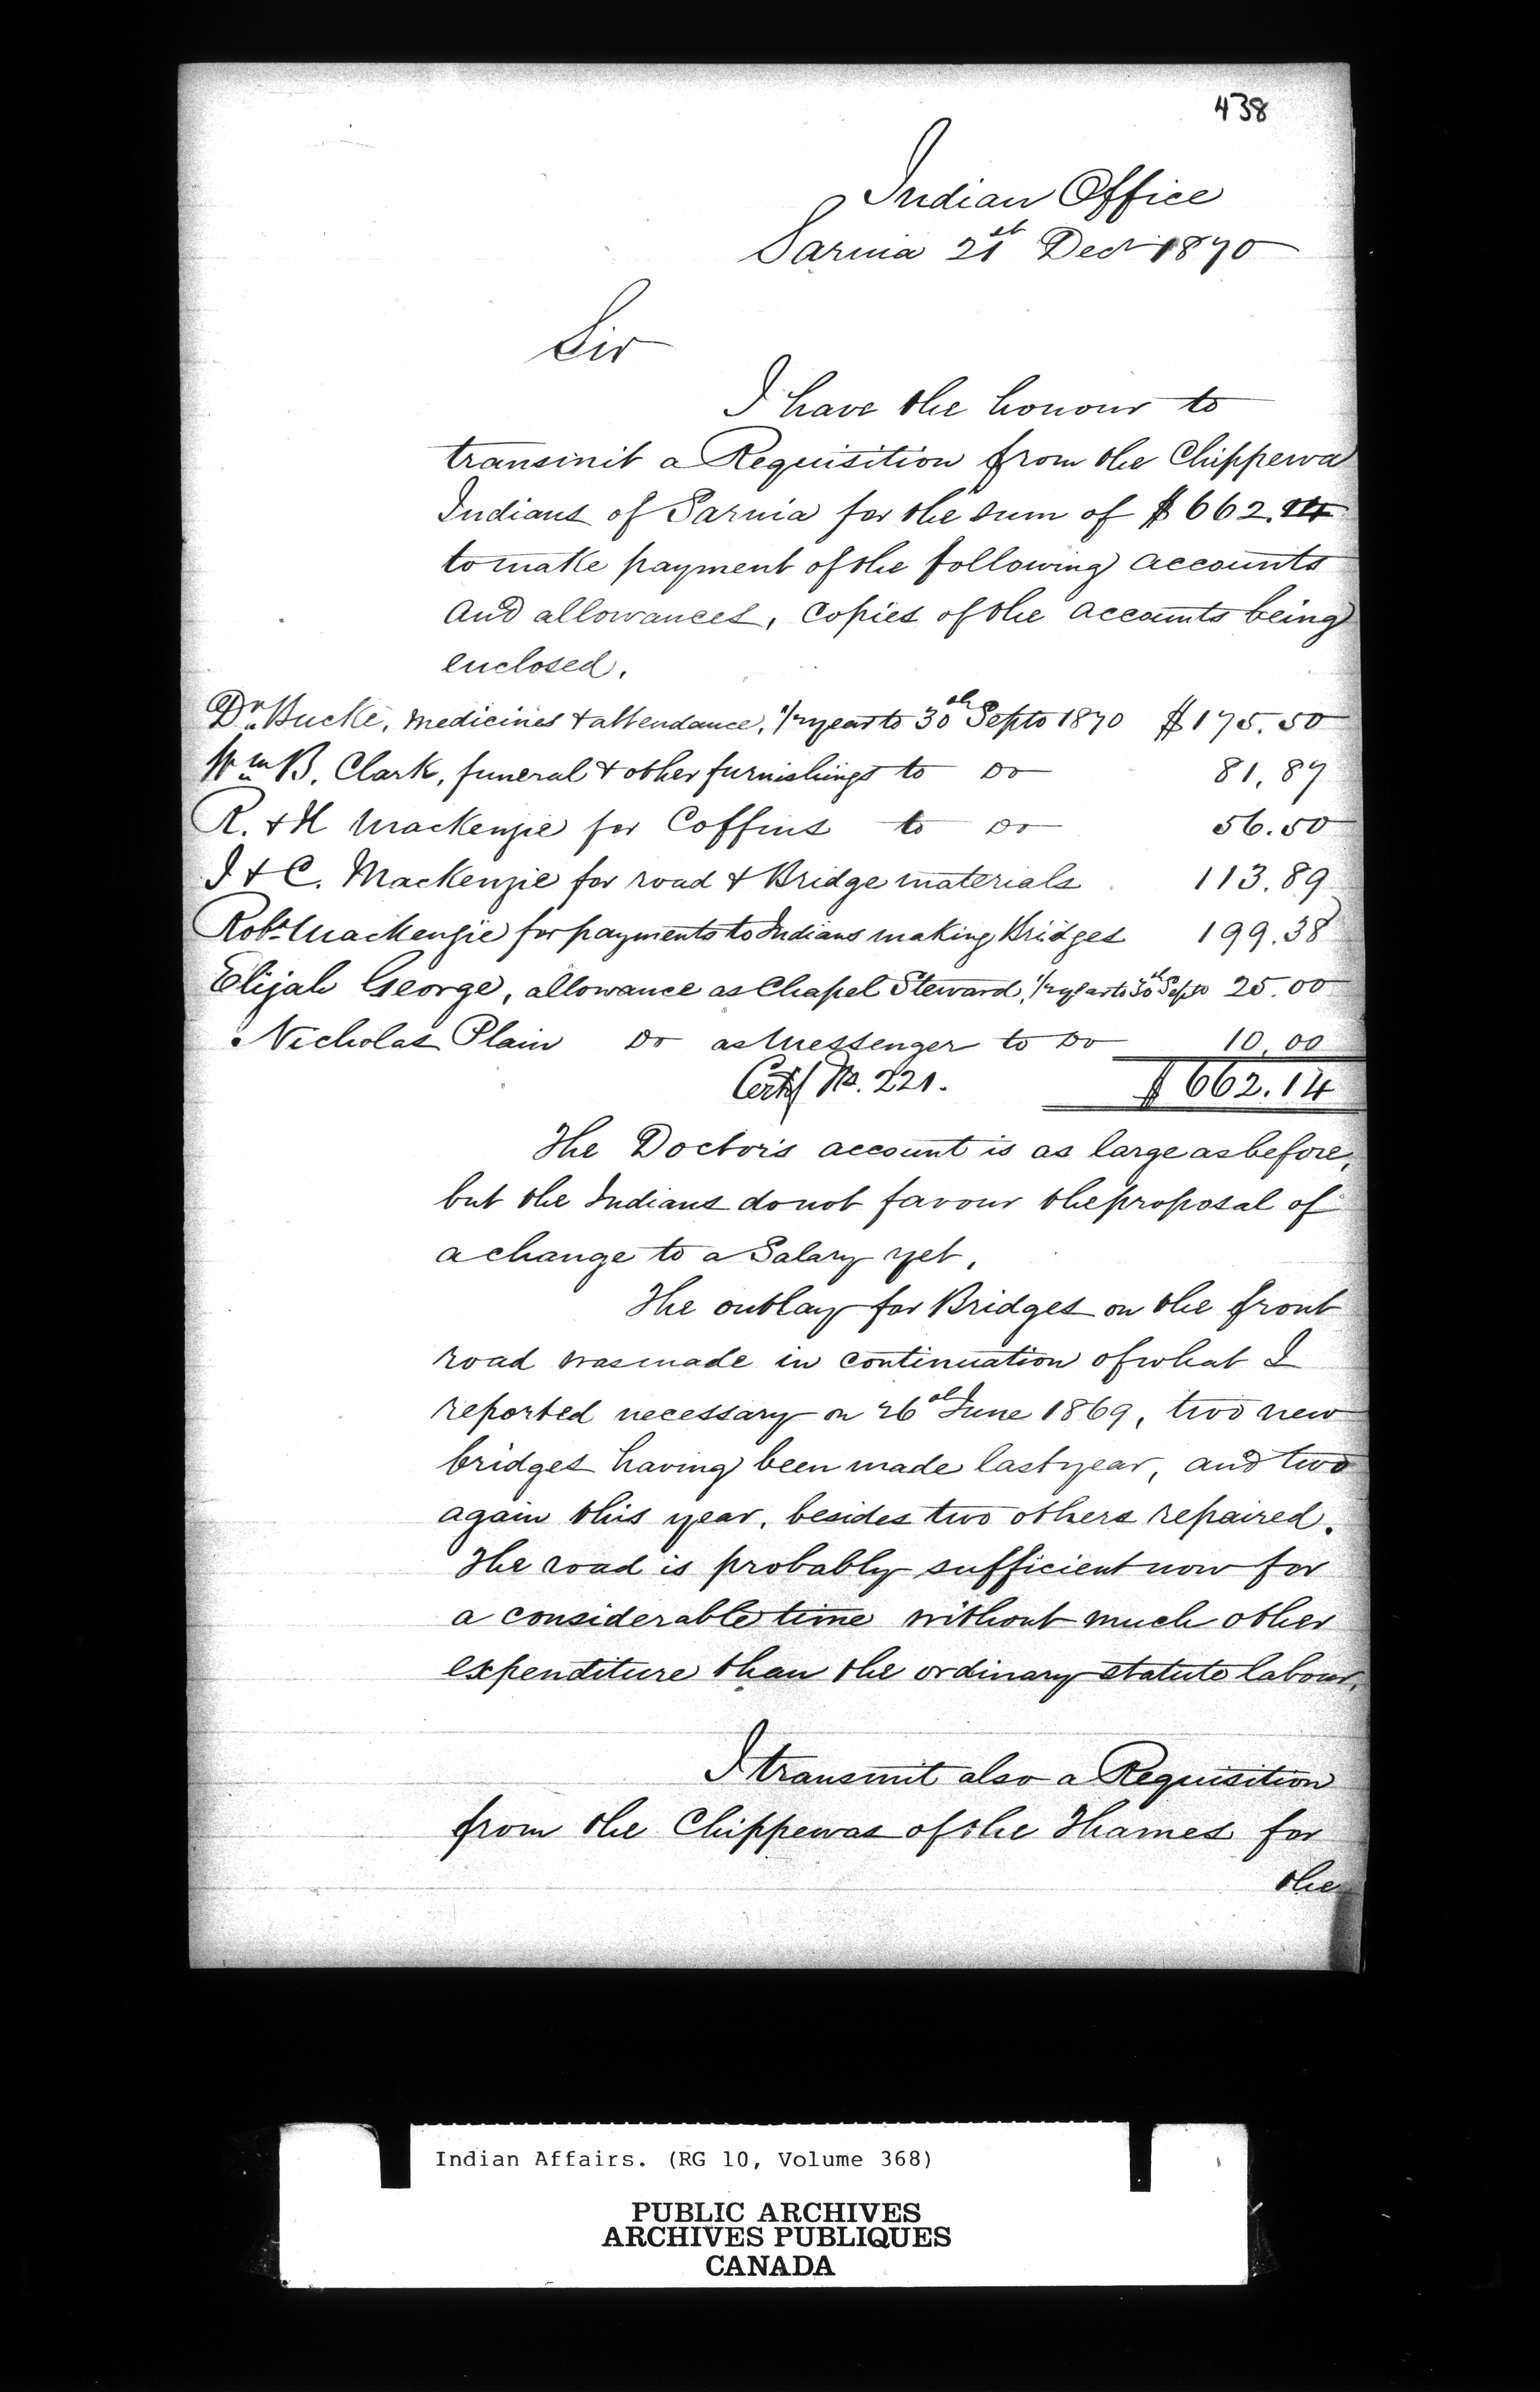 438
Indian Office
Sarnia 21st Decr 1870
Sir
I have the honour to
transmit a Requisition from the Chippewa
Indians of Sarnia for the sum of $662.14
to make payment of the following accounts
and allowances, copies of the accounts being
enclosed.
Dr. Bucke, medicines & attendance, 1/2 year to 30th Septr 1870 $175.50
Wm B. Clark, funeral & other furnishings to Do 81.87
R. & H Mackenzie for Coffins to Do 56.50
J & C. Mackenzie for road & Bridge materials 113.89
Robt Mackenzie for payments to Indians making Bridges 199.38
Elijah George, allowance as Chapel Steward, 1/2 year to 30th Sept 25.00
Nicholas Plain Do as Messenger to Do 10.00
Certif No. 221. $662.14
The Doctor's account is as large as before,
but the Indians do not favour the proposal of
a change to a Salary yet.
The outlay for Bridges on the front
road was made in continuation of what I
reported necessary on 26th June 1869, two new
bridges having been made last year, and two
again this year, besides two others repaired.
The road is probably sufficient now for
a considerable time without much other
expenditure than the ordinary statute labour.
I transmit also a Requisition
from the Chippewas of the Thames for
the
Indian Affairs. (RG 10, Volume 368)
PUBLIC ARCHIVES
ARCHIVES PUBLIQUES
CANADA